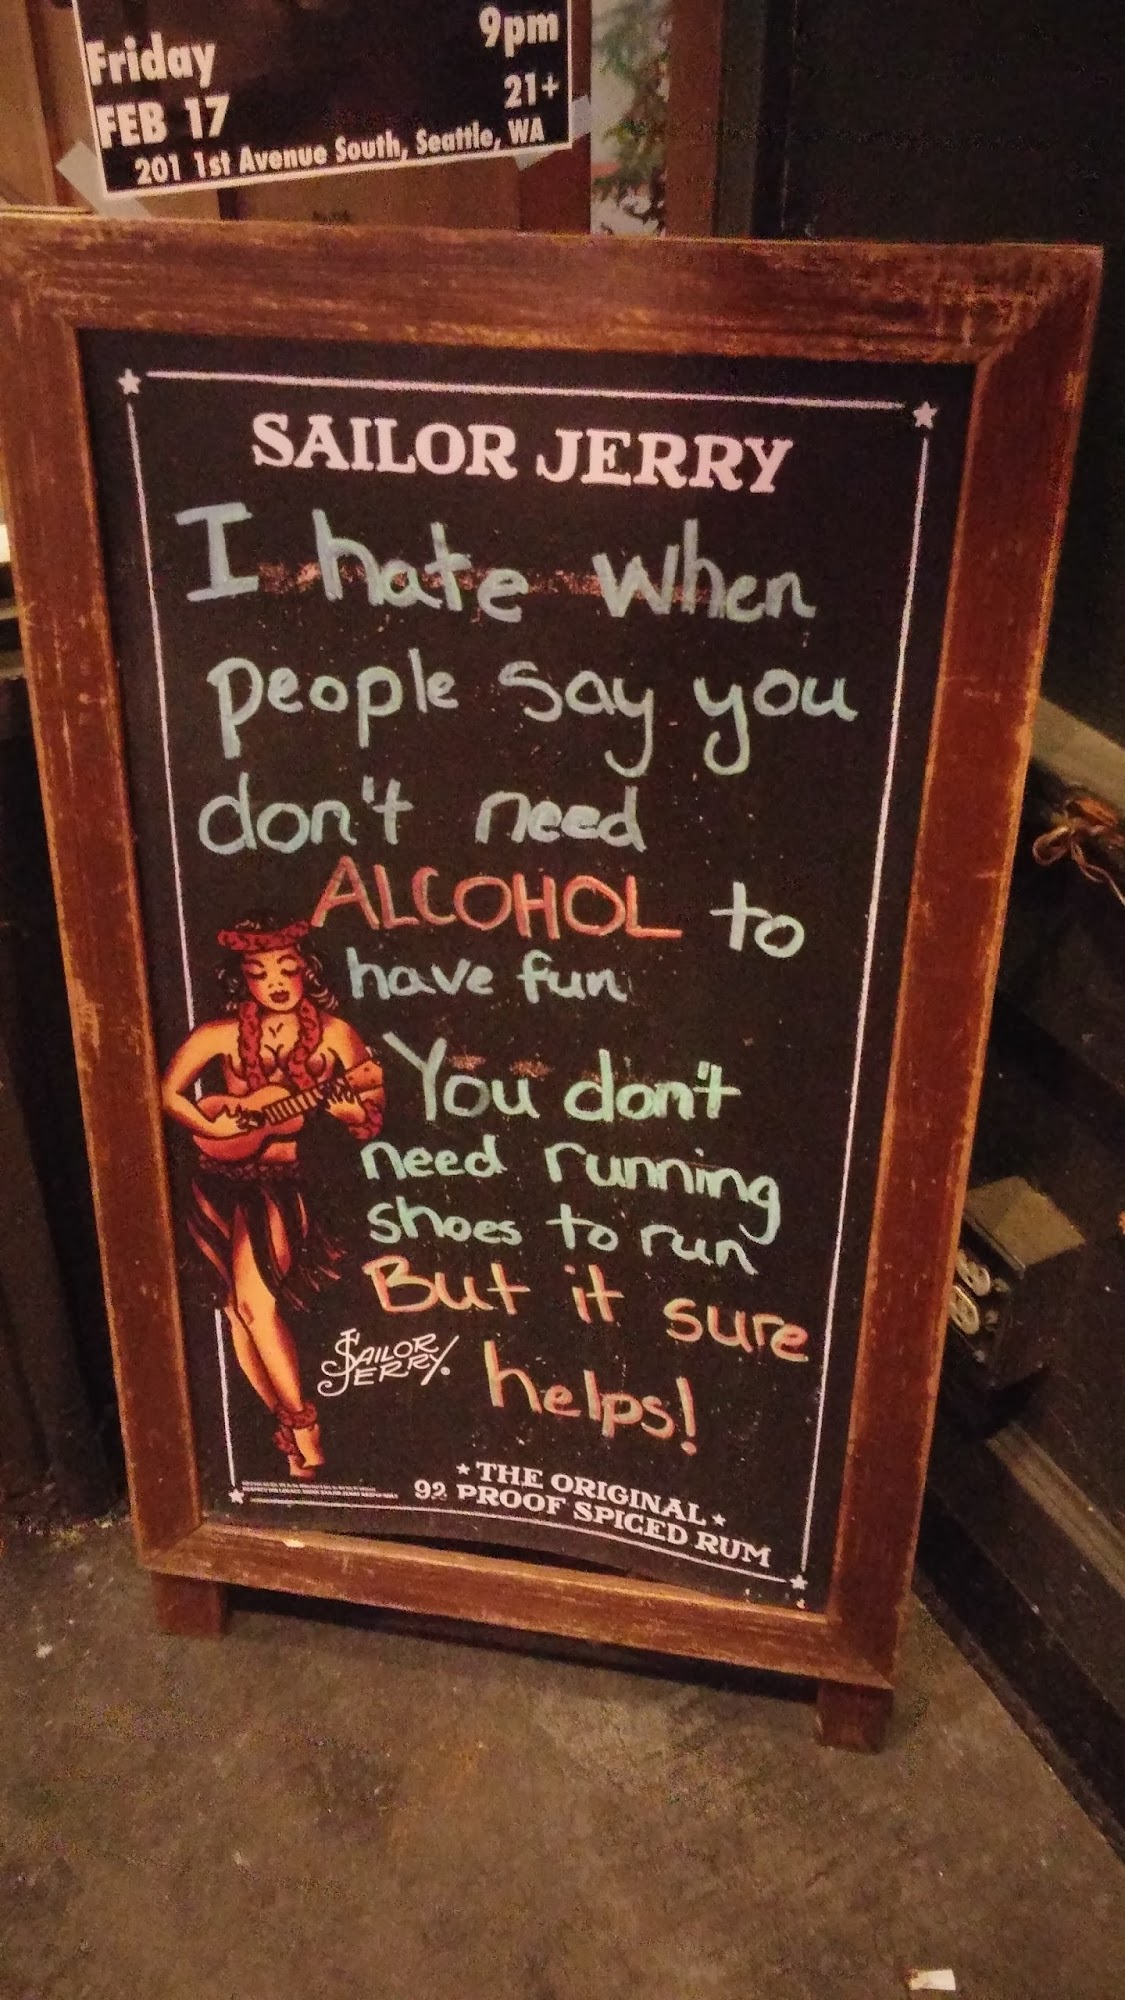 Friday 9pm
FEB 17 21+
201 1st Avenue South, Seattle, WA
SAILOR JERRY
I hate when
people say you
don't need
ALCOHOL to
have fun
You don't
need running
shoes to run
But it sure
helps!
SAILOR
JERRY
★ THE ORIGINAL ★
92 PROOF SPICED RUM